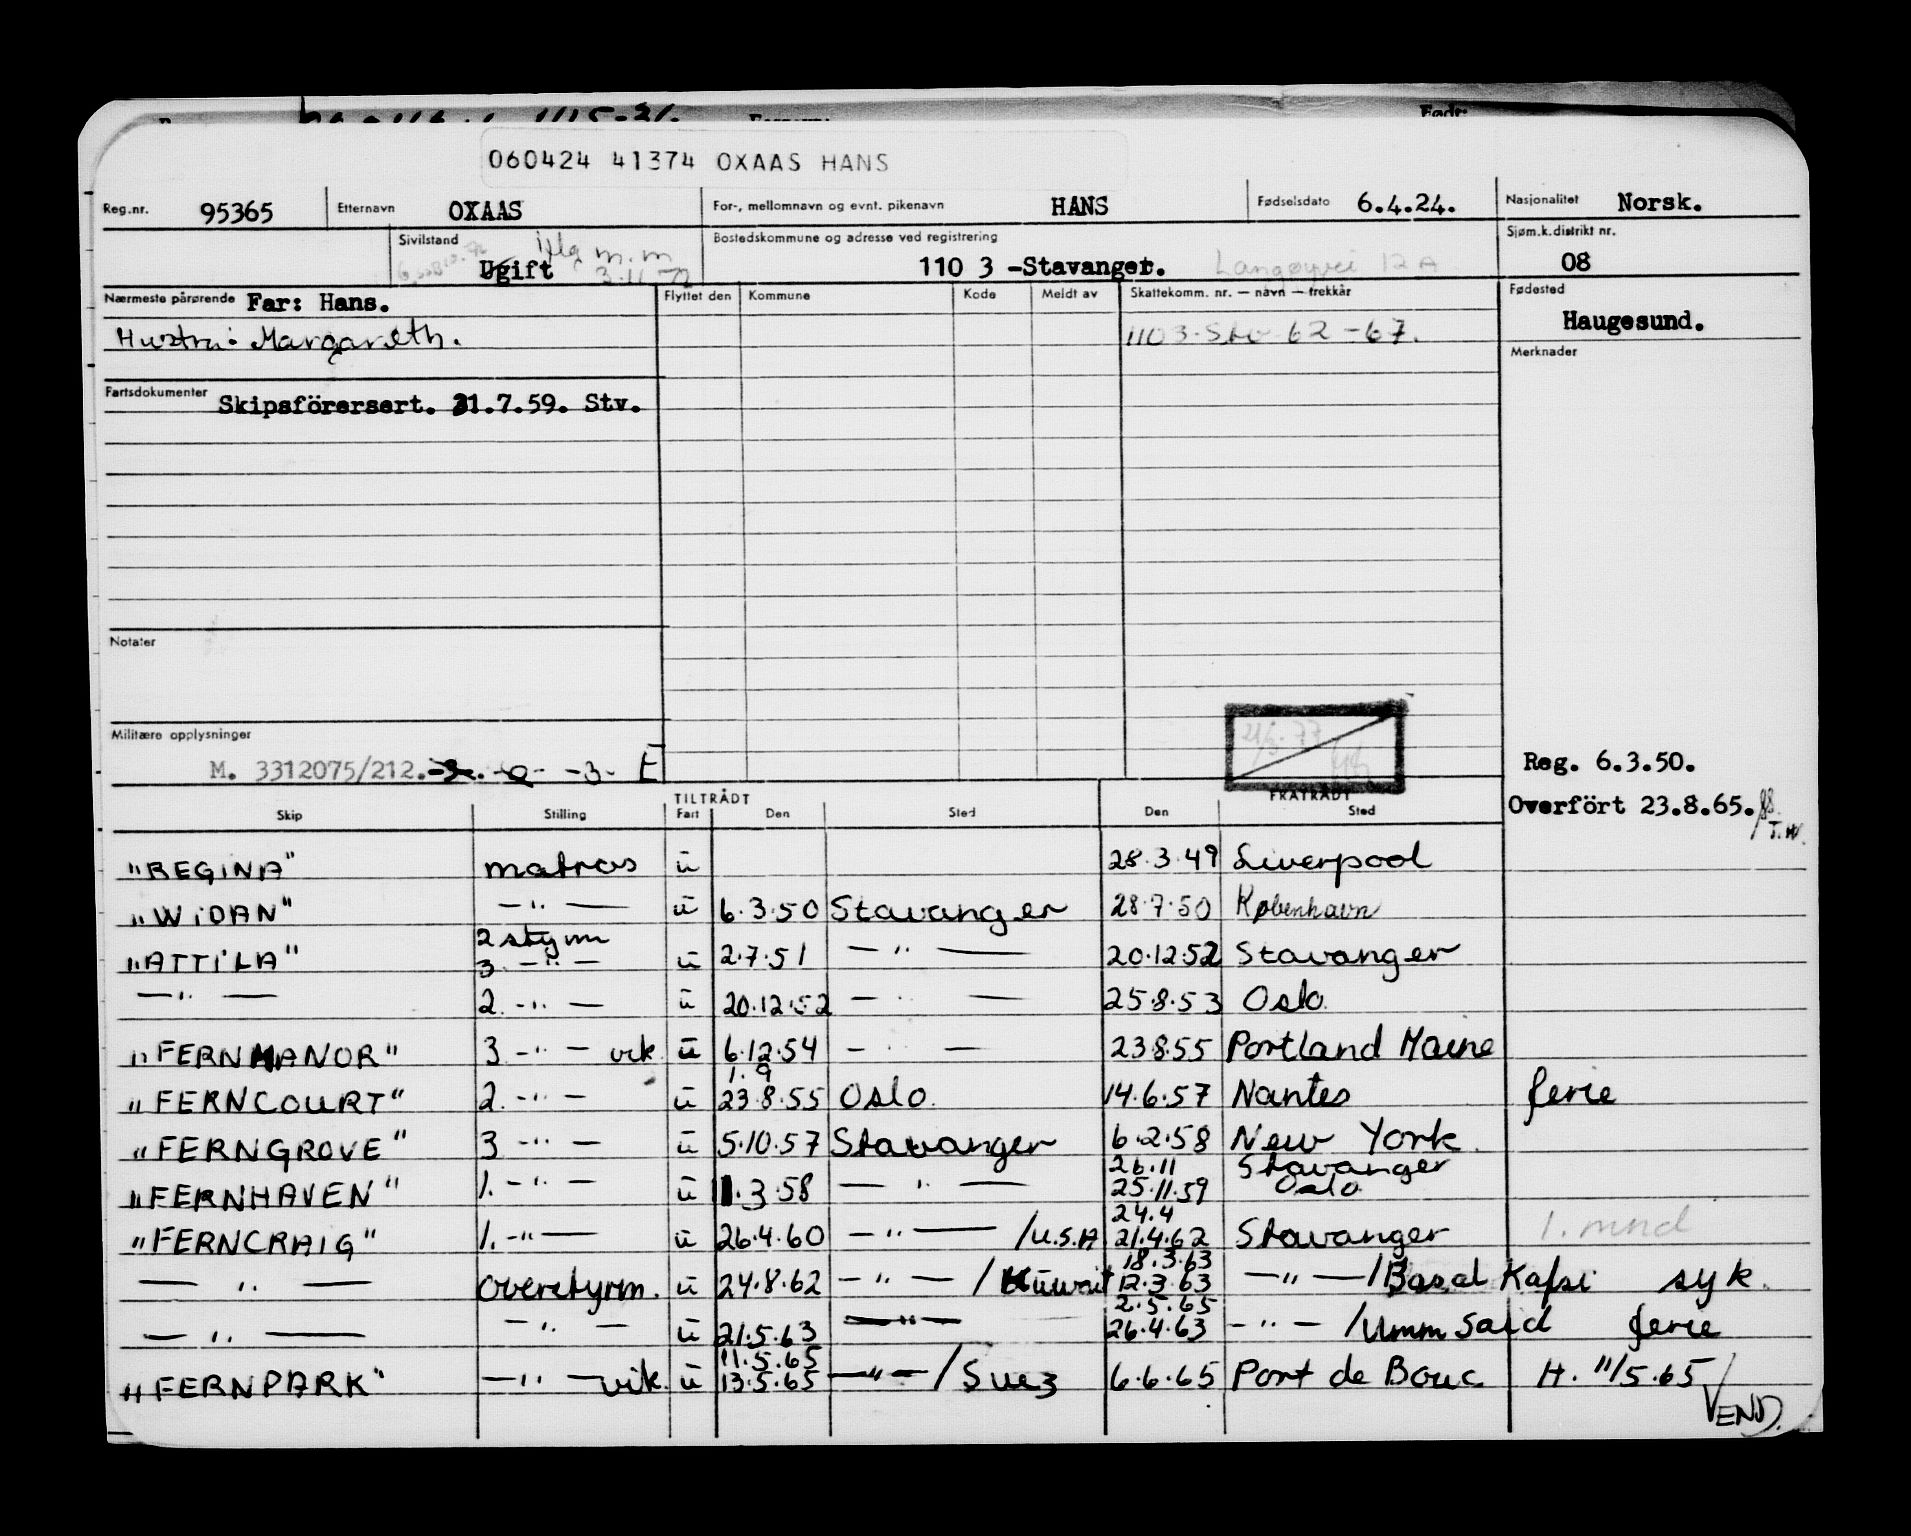 Født:
060424 41374 OXAAS HANS
Reg.nr. 95365 Etternavn OXAAS For-, mellomnavn og evnt. pikenavn HANS Fødselsdato 6.4.24. Nasjonalitet Norsk.
Sivilstand Ugift m.m 3.11.72 Bostedskommune og adresse ved registrering 110 3 -Stavanger. Langøyvei 12 A Sjøm.k.distrikt nr. 08
Nærmeste pårørende Far: Hans. Flyttet den Kommune Kode Meldt av Skattekomm. nr. — navn — trekkår Fødested
Hustru: Margareth. 1103.Stv 62-67. Haugesund.
Merknader
Fartsdokumenter Skipsförersert. 31.7.59. Stv.
Notater
Militære opplysninger
M. 3312075/212. -3- E
Reg. 6.3.50.
Overfört 23.8.65.
TILTRÅDT FRATRÅDT
Skip Stilling Fart Den Sted Den Sted
"REGINA" matros u 28.3.49 Liverpool
"WIDAN" —"— u 6.3.50 Stavanger 28.7.50 København
"ATTILA" 2 styrm 3. —"— u 2.7.51 —"— 20.12.52 Stavanger
—"— 2. —"— u 20.12.52 —"— 25.8.53 Oslo.
"FERNMANOR" 3 —"— vik u 6.12.54 —"— 23.8.55 Portland Maine
"FERNCOURT" 2. —"— u 1.9 23.8.55 Oslo. 14.6.57 Nantes ferie
"FERNGROVE" 3 —"— u 5.10.57 Stavanger 6.2.58 New York.
"FERNHAVEN" 1. —"— u 1.3.58 —"— 26.11 25.11.59 Stavanger Oslo
"FERNCRAIG" 1. —"— u 26.4.60 —"— /U.S.A 24.4 21.4.62 Stavanger 1. mnd
—"— Overstyrm. u 24.8.62 —"— /Kuwait 18.3.63 12.3.63 —"— / Kafsi syk.
—"— —"— u 21.5.63 —"— 2.5.65 26.4.63 —"— /Umm Said ferie
"FERNPARK" —"— vik. u 11.5.65 13.5.65 —"— /Suez 6.6.65 Port de Bouc H. 11/5.65
VEND.